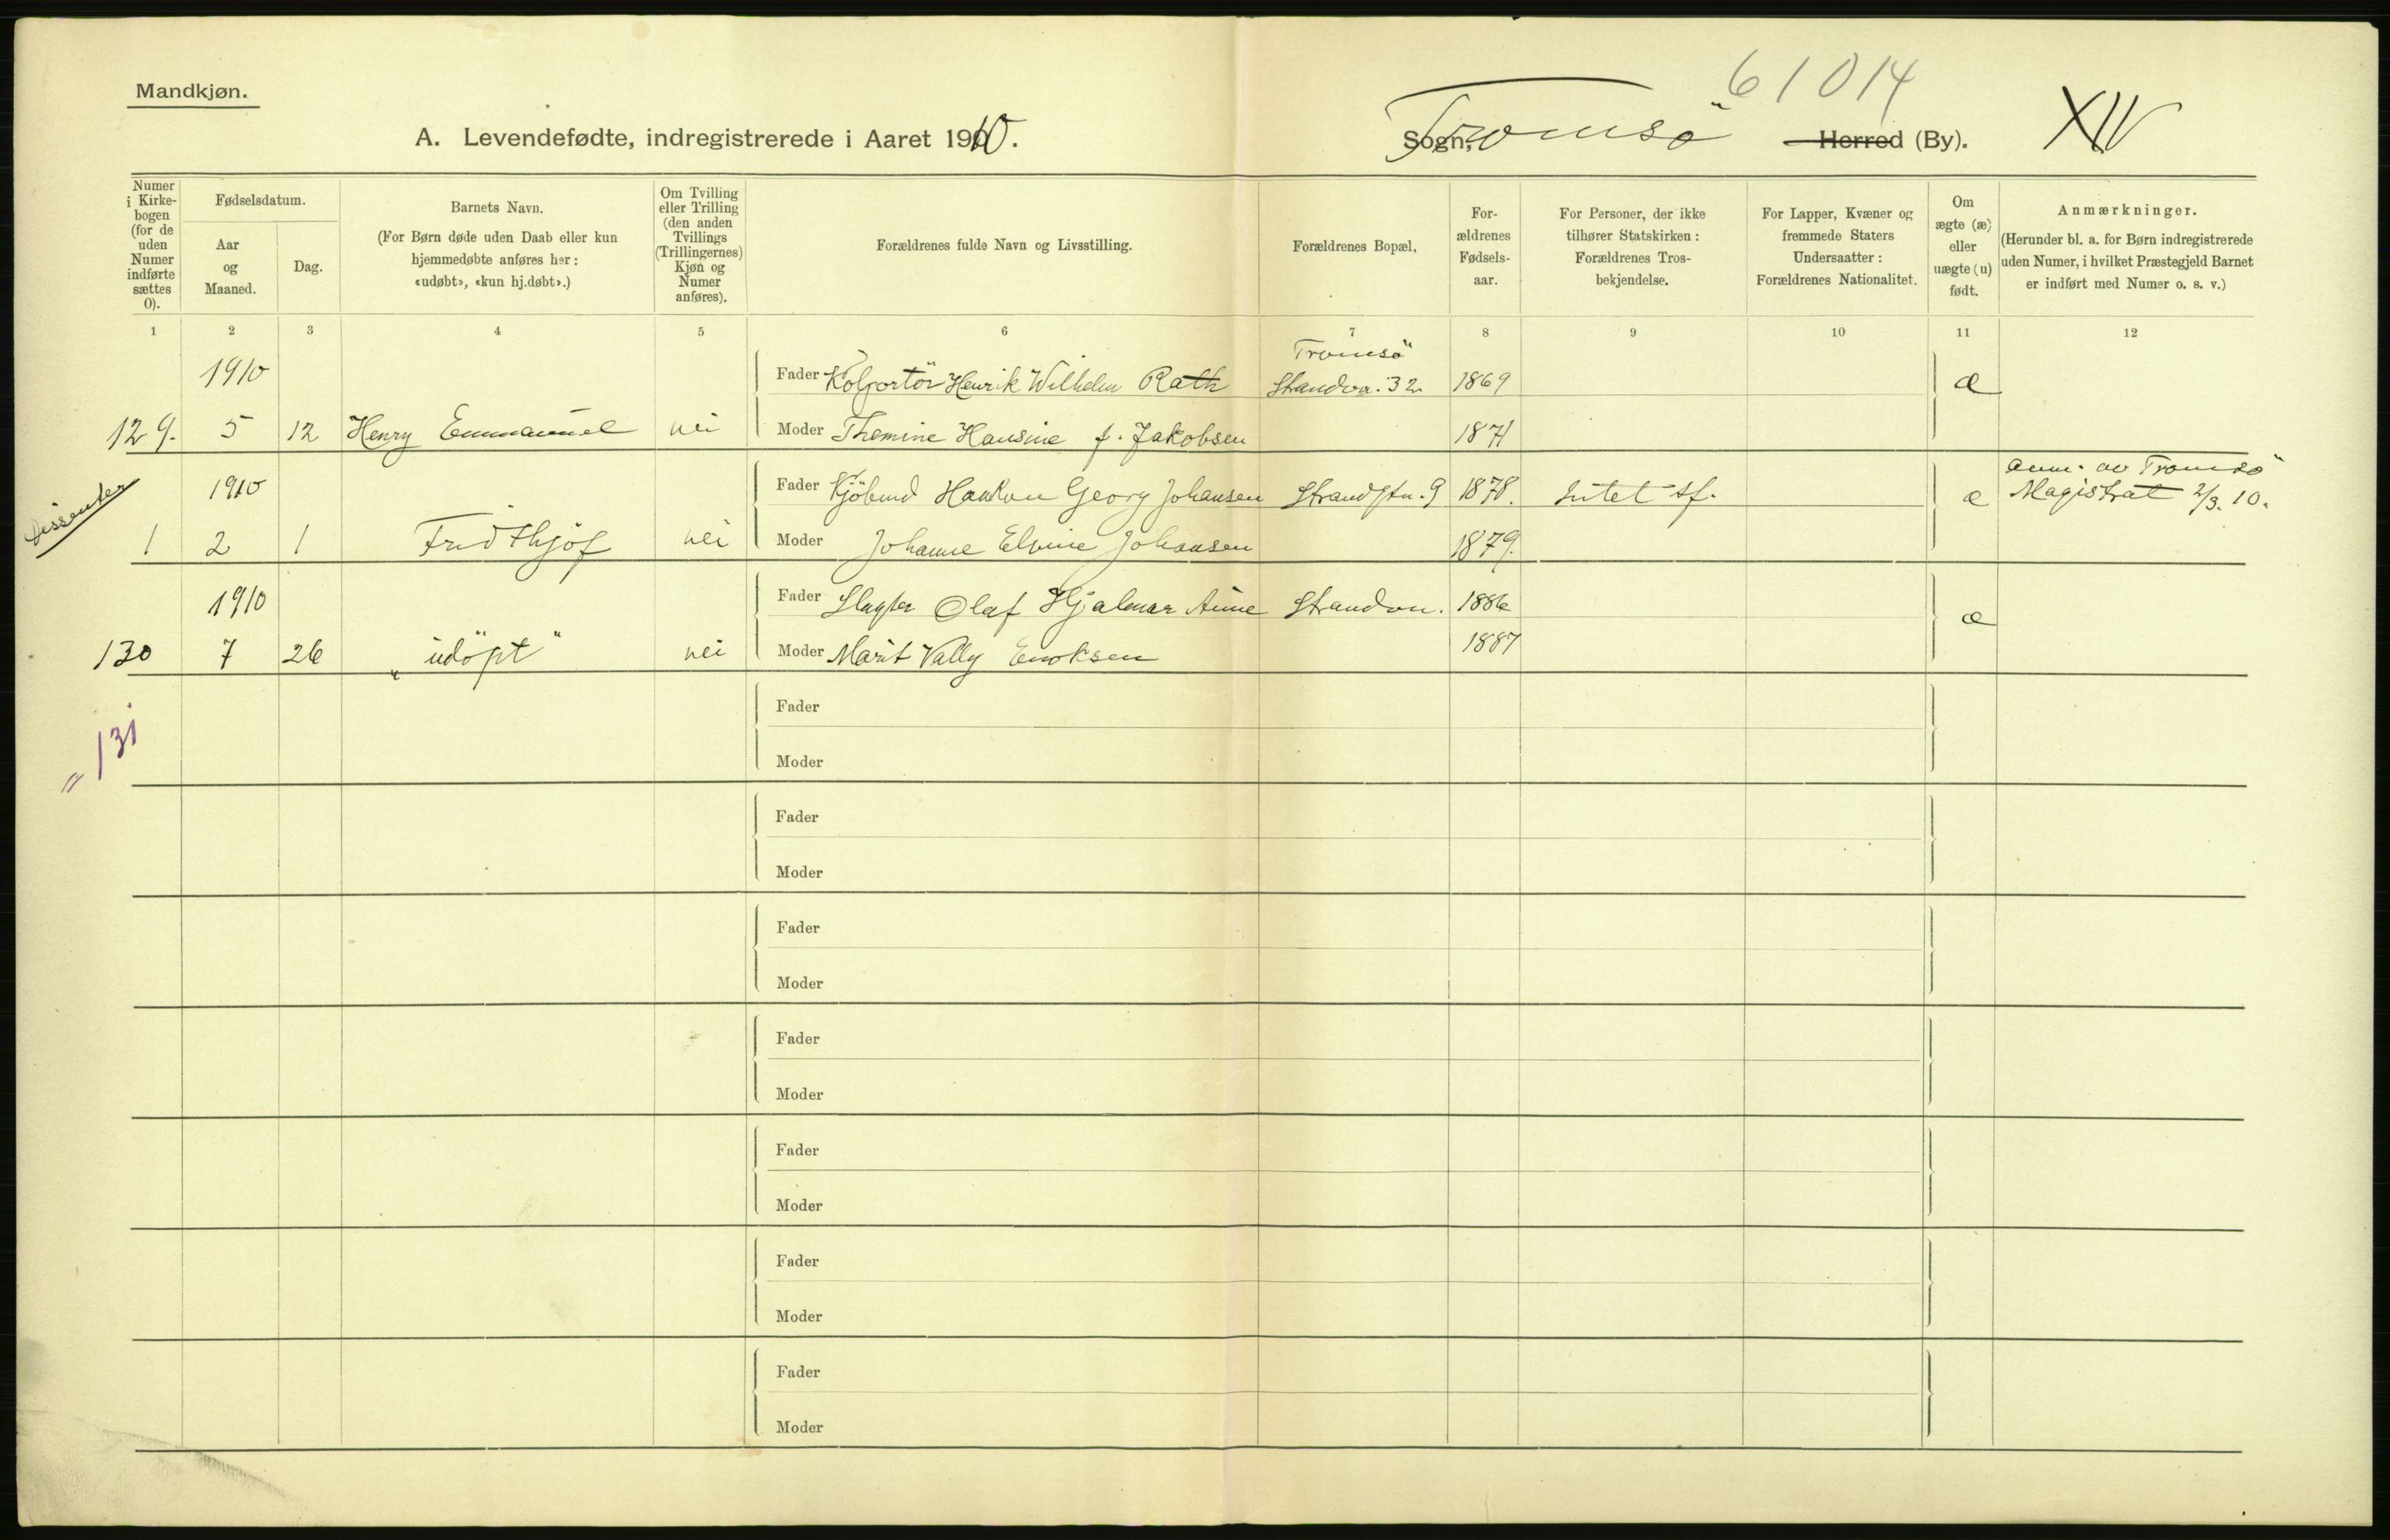 61014
Mandkjøn.
A. Levendefødte, indregistrerede i Aaret 1910.
Tromsö
Sogn, Herred (By).
XIV
Numer i Kirke- bogen (for de uden Numer indførte sættes 0).
Fødselsdatum.
Aar og Maaned.
Dag.
Barnets Navn.
(For Børn døde uden Daab eller kun
hjemmedøbte anføres her:
«udøbt», «kun hj.døbt».)
Om Tvilling eller Trilling (den anden Tvillings (Trillingernes) Kjøn og Numer anføres).
Forældrenes fulde Navn og Livsstilling.
Forældrenes Bopæl,
For- ældrenes Fødsels- aar.
For Personer, der ikke
tilhører Statskirken:
Forældrenes Tros-
bekjendelse.
For Lapper, Kvæner og
fremmede Staters
Undersaatter:
Forældrenes Nationalitet.
Om ægte (æ) eller uægte (u) født.
Anmærkninger.
(Herunder bl. a. for Børn indregistrerede
uden Numer, i hvilket Præstegjeld Barnet
er indført med Numer o. s. v.)
1 2 3 4 5 6 7 8 9 10 11 12
Tromsö
1910 Fader Kolportör Henrik Wilhelm Rath Strandvn. 32 1869 æ
129. 5 12 Henry Emmanuel nei Moder Themine Hansine f. Jakobsen 1871
Dissenter
anm. av Tromsö
1910 Fader Kjöbmd Haakon Georg Johansen Strandgtn. 9 1878. Intet sf. æ Magistrat 2/3. 10.
1 2 1 Fridthjof nei Moder Johanne Elvine Johansen 1879.
1910 Fader Slagter Olaf Hjalmar Aune Strandvn. 1886 æ
130 7 26 „udöpt" nei Moder Marit Vally Enoksen 1887
„ 131
Fader
Moder
Fader
Moder
Fader
Moder
Fader
Moder
Fader
Moder
Fader
Moder
Fader
Moder